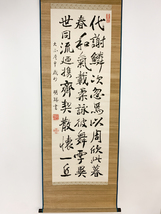 代謝鱗次忽焉以周欣此暮
春和氣載柔詠彼舞雩異
世同流迺携齊契散懷一丘